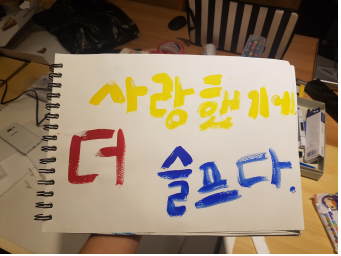 사랑했기에
더 슬프다.